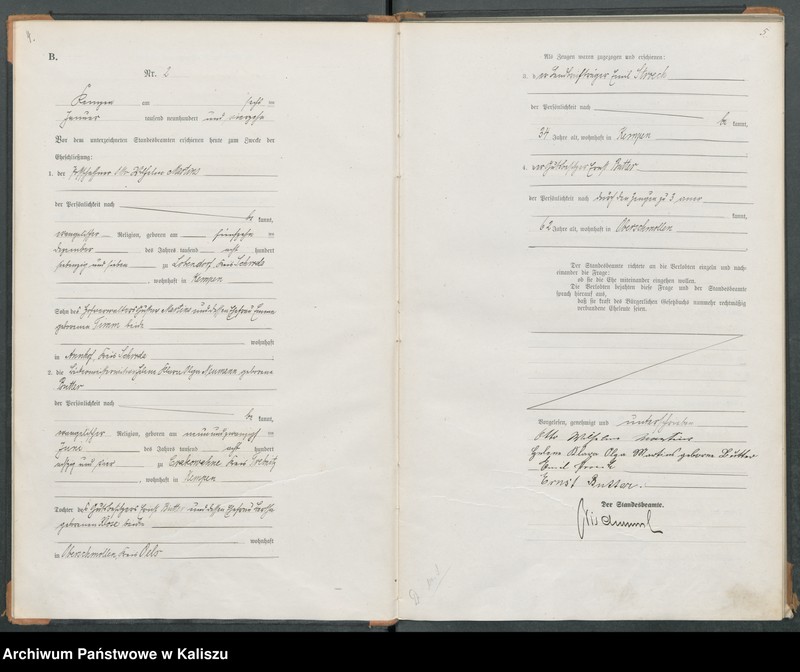 4.
B.
Nr. 2
Kempen am
Januar tausend neunhundert und
Vor dem unterzeichneten Standesbeamten erschienen heute zum Zwecke der
Eheschließung:
1. der Otto Wilhelm Martins
der Persönlichkeit nach
be kannt,
evangelischer Religion, geboren am
Dezember des Jahres tausend acht hundert
siebenzig und sieben zu Kreis Schroda
, wohnhaft in Kempen
Sohn des Gustav Martins und dessen Ehefrau Emma
geborenen Timm beide
wohnhaft
in Annhof, Kreis Schroda
2. die Helene Klara Olga Neumann geborene
Butter
der Persönlichkeit nach
be kannt,
evangelischer Religion, geboren am neunundzwanzigsten
Juni des Jahres tausend acht hundert
achtzig und vier zu Kreis
, wohnhaft in Kempen
Tochter des Gutsbesitzers Ernst Butter und dessen Ehefrau
geborenen Klose beide
wohnhaft
in Oberschmollen, Kreis Oels
5.
Als Zeugen waren zugezogen und erschienen:
3. der Emil
der Persönlichkeit nach
be kannt,
34 Jahre alt, wohnhaft in Kempen
4. der Gutsbesitzer Ernst Butter
der Persönlichkeit nach durch den Zeugen zu 3 aner
kannt,
62 Jahre alt, wohnhaft in Oberschmollen
Der Standesbeamte richtete an die Verlobten einzeln und nach-
einander die Frage:
ob sie die Ehe miteinander eingehen wollen.
Die Verlobten bejahten diese Frage und der Standesbeamte
sprach hierauf aus,
daß sie kraft des Bürgerlichen Gesetzbuchs nunmehr rechtmäßig
verbundene Eheleute seien.
Vorgelesen, genehmigt und unterschrieben
Otto Wilhelm Martins
Helene Klara Olga Martins geborene Butter
Emil
Ernst Butter.
Der Standesbeamte.
Archiwum Państwowe w Kaliszu